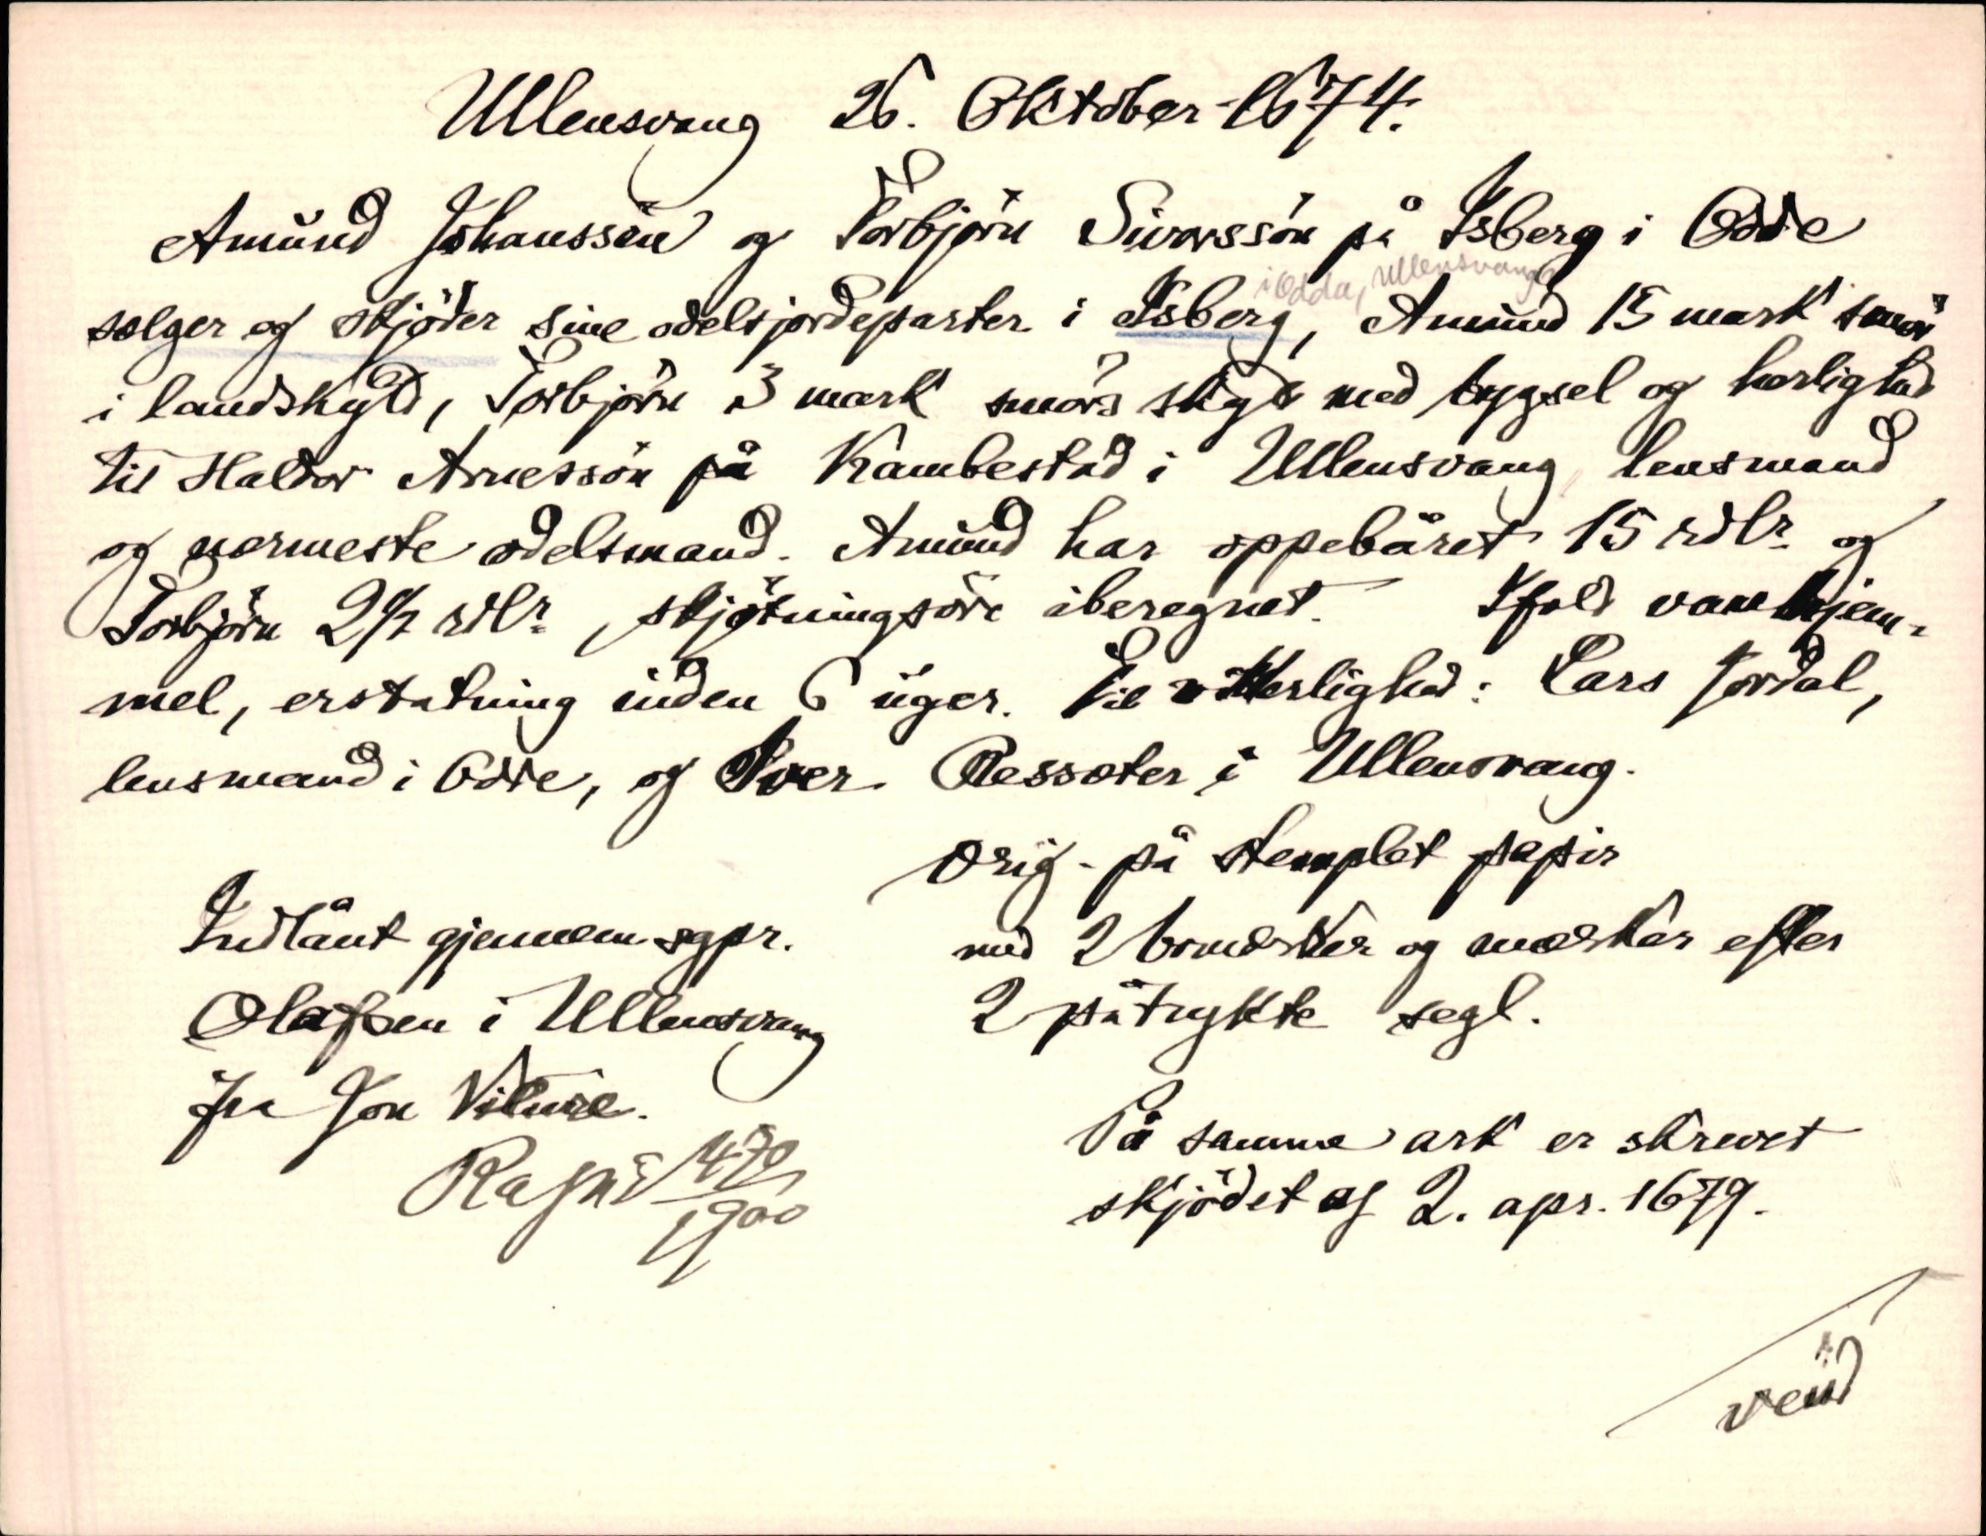 Ullensvang 26. Oktober 1674.
Amund Johanssøn og Torbjørn Sivorssøn på Isberg i Odde
i Odda, Ullensvang
sælger og skjøder sine odelsjordeparter i Isberg, Amund 15 mark smør
i landskyld, Torbjørn 3 mark smørs skyld med bygsel og herlighed
til Haldor Arnessøn på Kambestad i Ullensvang, lensmand
og nærmeste odelsmand. Amund har oppebåret 15 rdlr. og
Torbjørn 2 1/2 rdlr., skjøtningsøre iberegnet. Ifald vanhjem-
mel, erstatning inden 6 uger. Til vitterlighed: Lars Jordal,
lensmand i Odde, og Iver Ræssæter i Ullensvang.
Orig. på stemplet papir
med 2 bomærker og mærker efter
2 påtrykte segl.
Indlånt gjennem sgpr.
Olafsen i Ullensvang
fra Jon Vilure.
1900
På samme ark er skrevet
skjødet af 2. apr. 1679.
vend